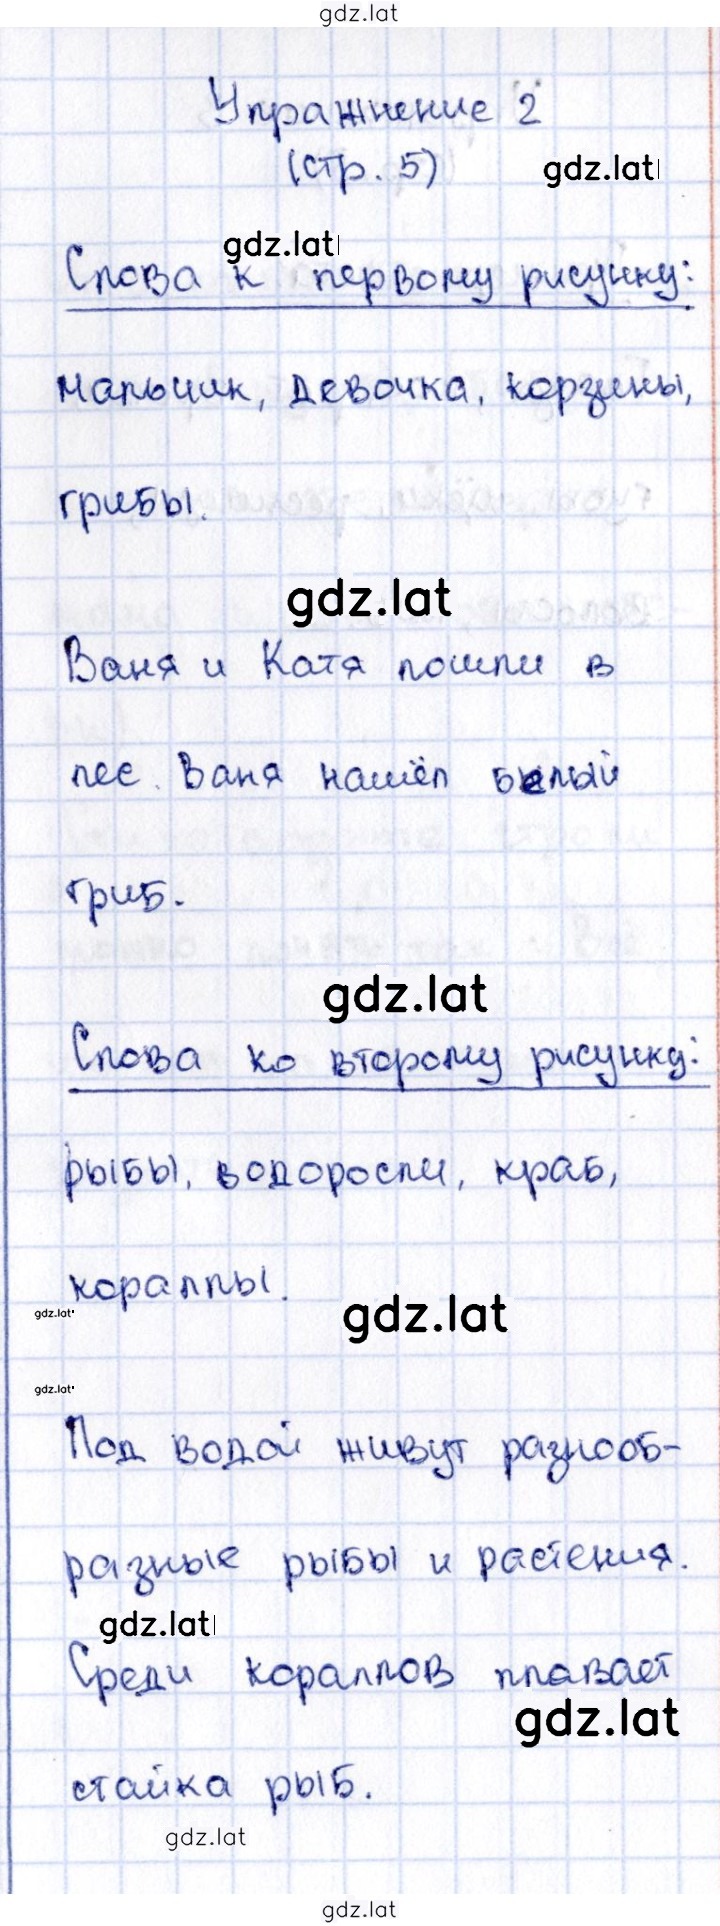 gdz.lat
Упражнение 2
(стр. 5)
gdz.lat
gdz.lat
Слова к первому рисунку:
мальчик, девочка, корзины,
грибы.
gdz.lat
Ваня и Катя пошли в
лес. Ваня нашёл белый
гриб.
gdz.lat
Слова ко второму рисунку:
рыбы, водоросли, краб,
кораллы.
gdz.lat
gdz.lat
gdz.lat
Под водой живут разнооб-
разные рыбы и растения.
gdz.lat
Среди кораллов плавает
gdz.lat
стайка рыб.
gdz.lat
gdz.lat